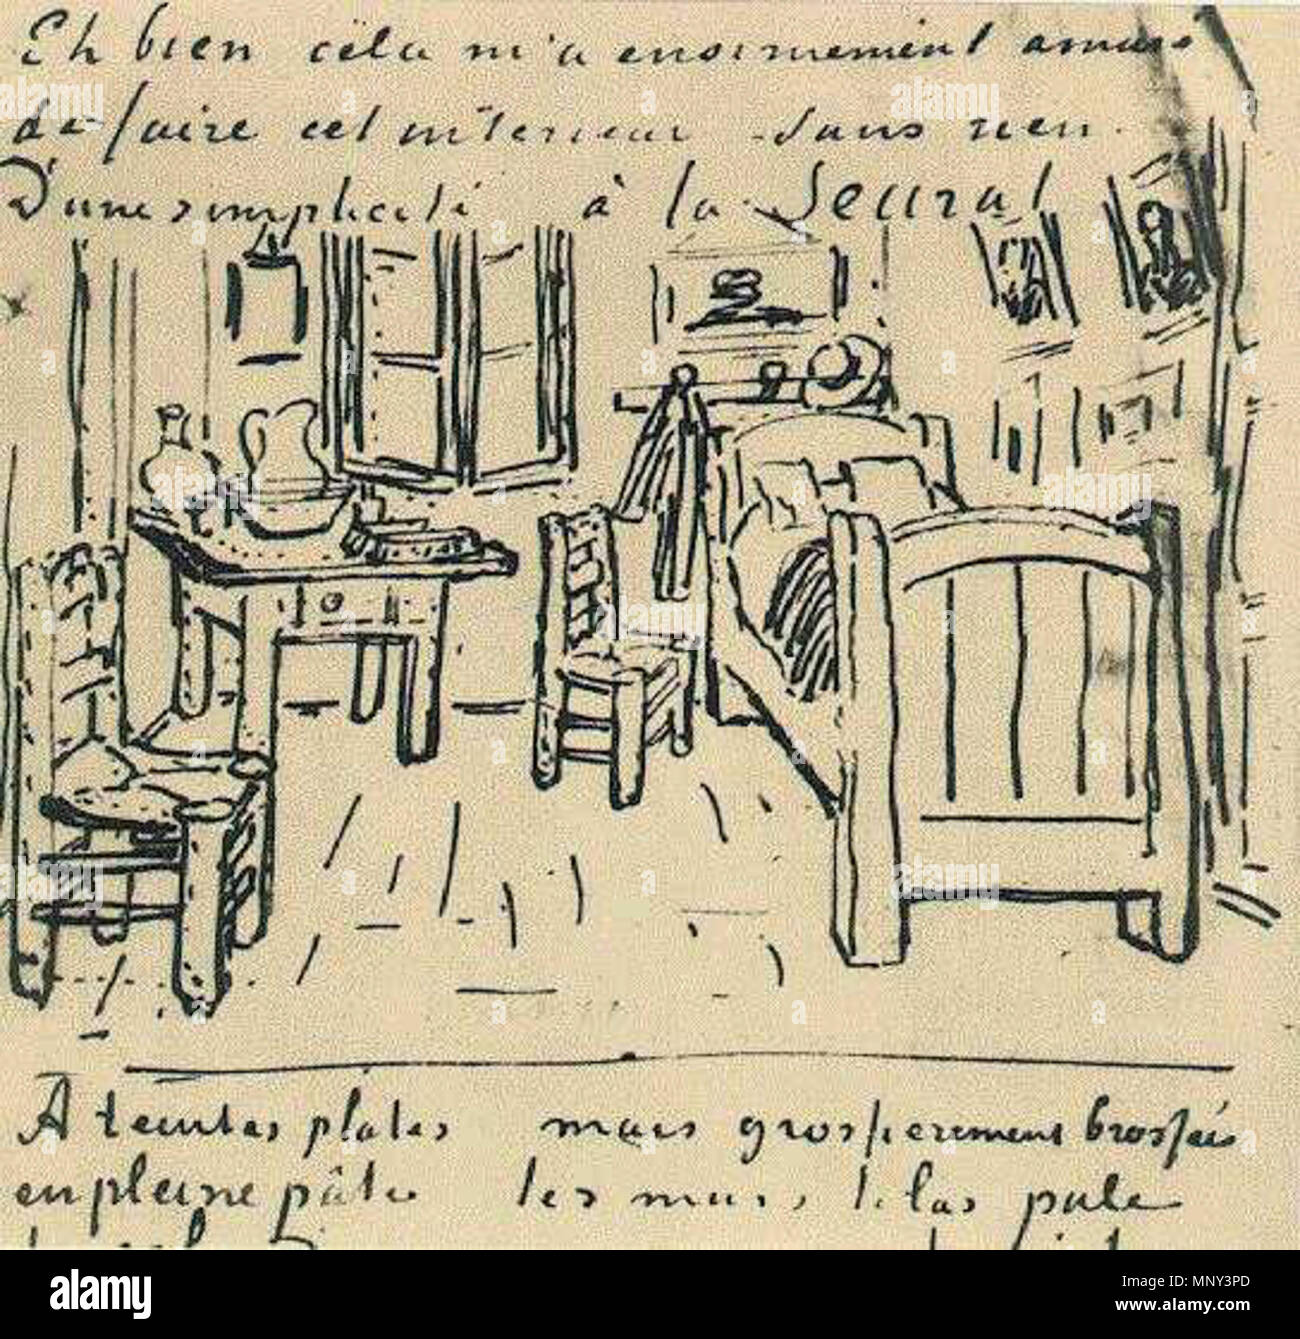 Eh bien cela m'a enormement amusé
de faire cet interieur sans rien.
D'une simplicité à la Seurat
A teintes plates mais grossierement brossées
en pleine pâte les murs lilas pale
alamy
Image ID: MNY3PD
www.alamy.com